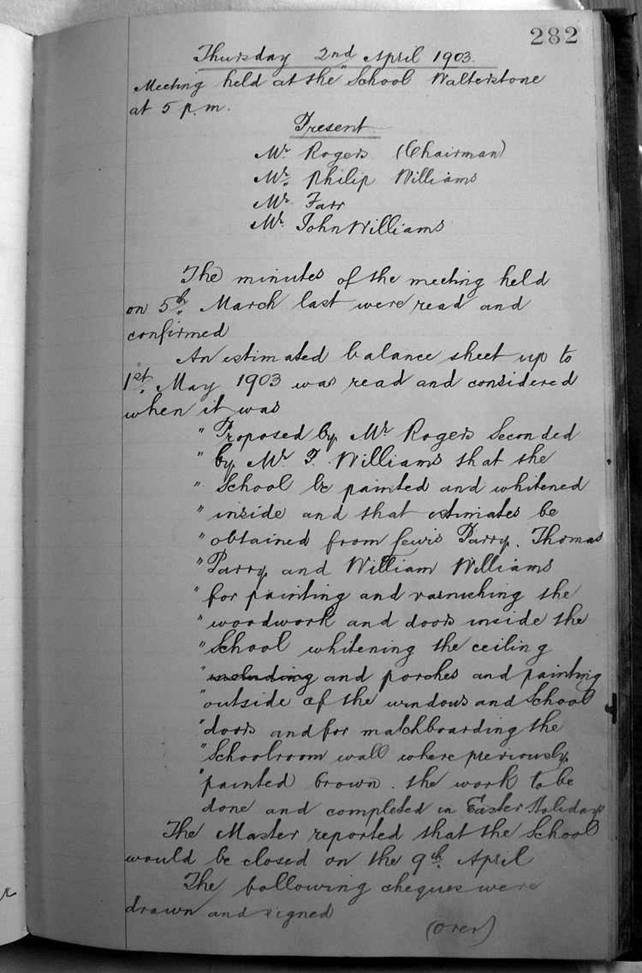 282
Thursday 2nd April 1903.
Meeting held at the School Walterstone
at 5 p.m.
Present
Mr. Rogers (Chairman)
Mr. Philip Williams
Mr. Farr
Mr. John Williams
The minutes of the meeting held
on 5th March last were read and
confirmed
An estimated balance sheet up to
1st May 1903 was read and considered
when it was
" Proposed by Mr Rogers Seconded
" by Mr P. Williams that the
" School be painted and whitened
" inside and that estimates be
" obtained from Lewis Parry. Thomas
" Parry and William Williams
" for painting and varnishing the
" woodwork and doors inside the
" School whitening the ceiling
" including and porches and painting
" outside of the windows and School
" doors and for matchboarding the
" Schoolroom wall where previously
" painted brown. the work to be
done and completed in Easter Holidays
The Master reported that the School
would be closed on the 9th April
The following cheques were
drawn and signed
(over)